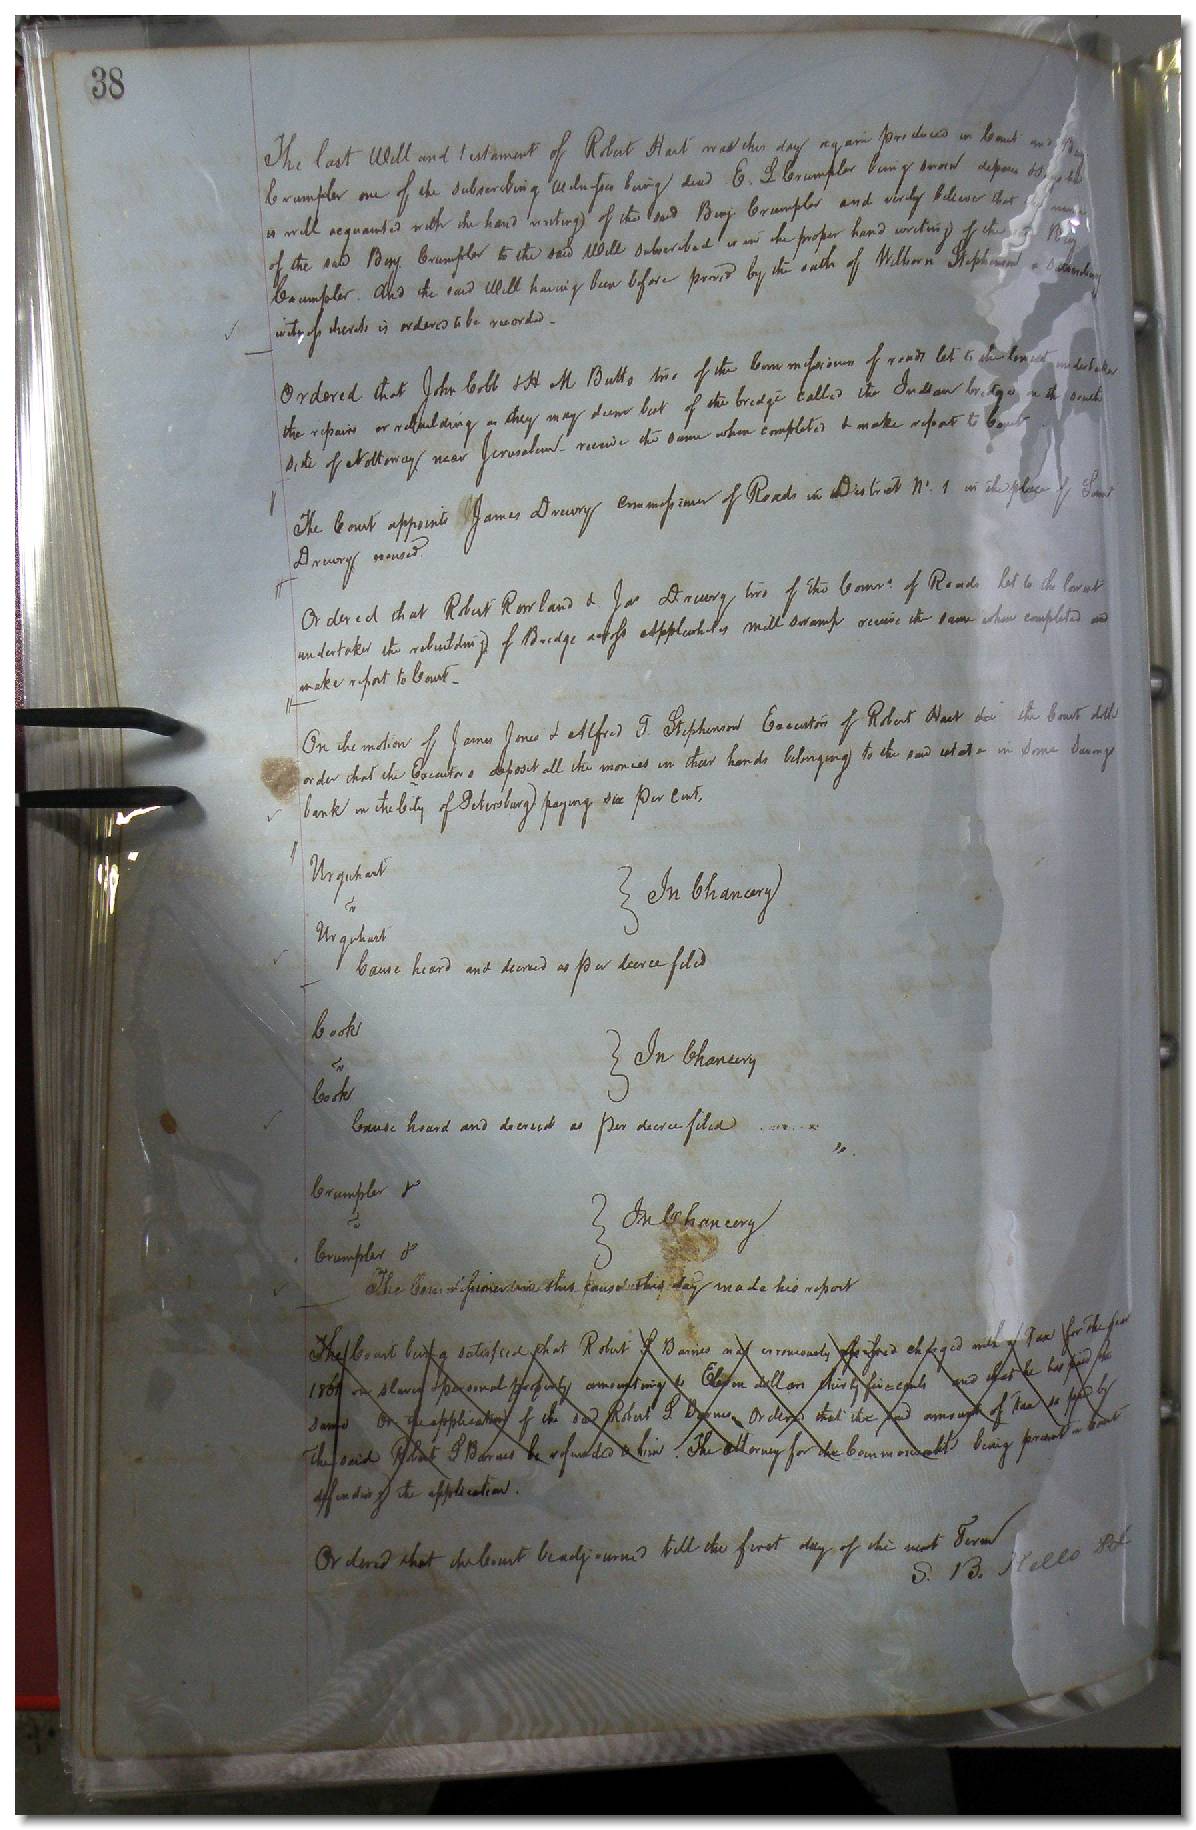 38
The last Will and Testament of Robert Hart was this day again produced in Court and Benj
Crumpler one of the subscribing Witnesses being dead E. L Crumpler being sworn deposes
is well acquainted with the hand writing of the said Benj Crumpler and verily believes that
of the said Benj Crumpler to the said Will subscribed is in the proper hand writing of the Benj
Crumpler. And the said Will having been before proved by the oath of Wilborn Stephenson a subscribing
witness thereto is ordered to be recorded.
Ordered that John Cobb & H M Butts two of the Commissioners of roads let to the lowest undertaker
the repairs or rebuilding as they may deem best of the bridge called the Indian bridge on the south
side of Nottoway near Jerusalem receive the same when completed & make report to Court
The Court appoints James Drewry commissioner of Roads in District No. 1 in the place of
Drewry
Ordered that Robert Rowland & Jas Drewry two of the Comrs of Roads let to the lowest
undertaker the rebuilding of Bridge across Applewhites mill swamp receive the same when completed and
make report to Court
On the motion of James Jones & Alfred T. Stephenson Executors of Robert Hart dec the Court doth
order that the Executors deposit all the monies in their hands belonging to the said estate in some Savings
bank in the City of Petersburg paying six per cent.
Urquhart
vs
Urquhart
} In Chancery
Cause heard and decreed as per decree filed
Cook
vs
Cook
} In Chancery
Cause heard and decreed as per decree filed
Crumpler &
vs
Crumpler &
} In Chancery
The Commissioner in this cause this day made his report
The Court being satisfied that Robert S Barnes was erroneously charged with Tax for the year
on slaves & personal property amounting to Eleven dollars thirty five cents and that he has paid the
same On the application of the said Robert S Barnes Ordered that the said amount of Tax so paid by
the said Robert S Barnes be refunded to him. The Attorney for the Commonwealth being present in Court
defending the application.
Ordered that the Court be adjourned till the first day of the next Term
S. B.